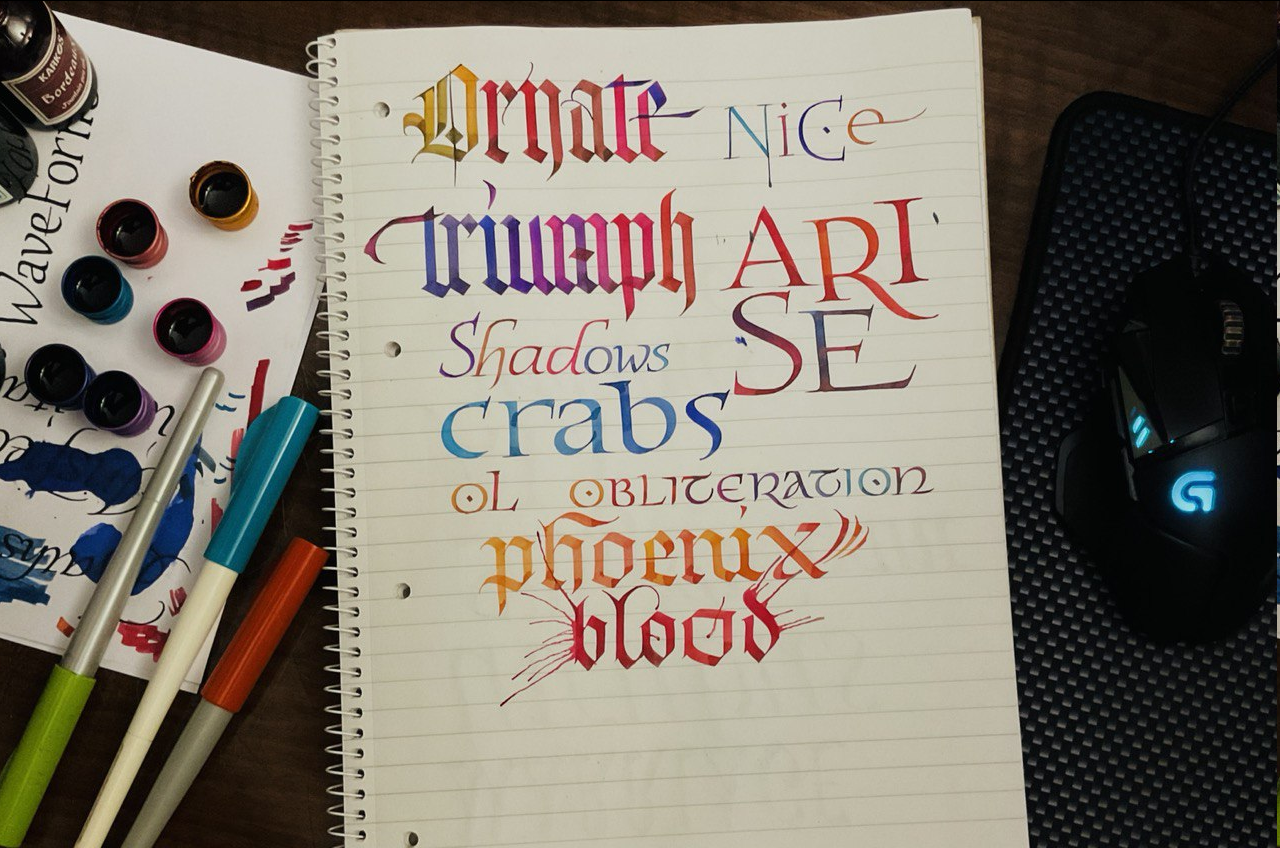 KARKOS
Bordeaux
WaveForm
Ornate NiCe
triumph ARI
Shadows SE
crabs
OL OBLITERATION
phoenix
blood
G